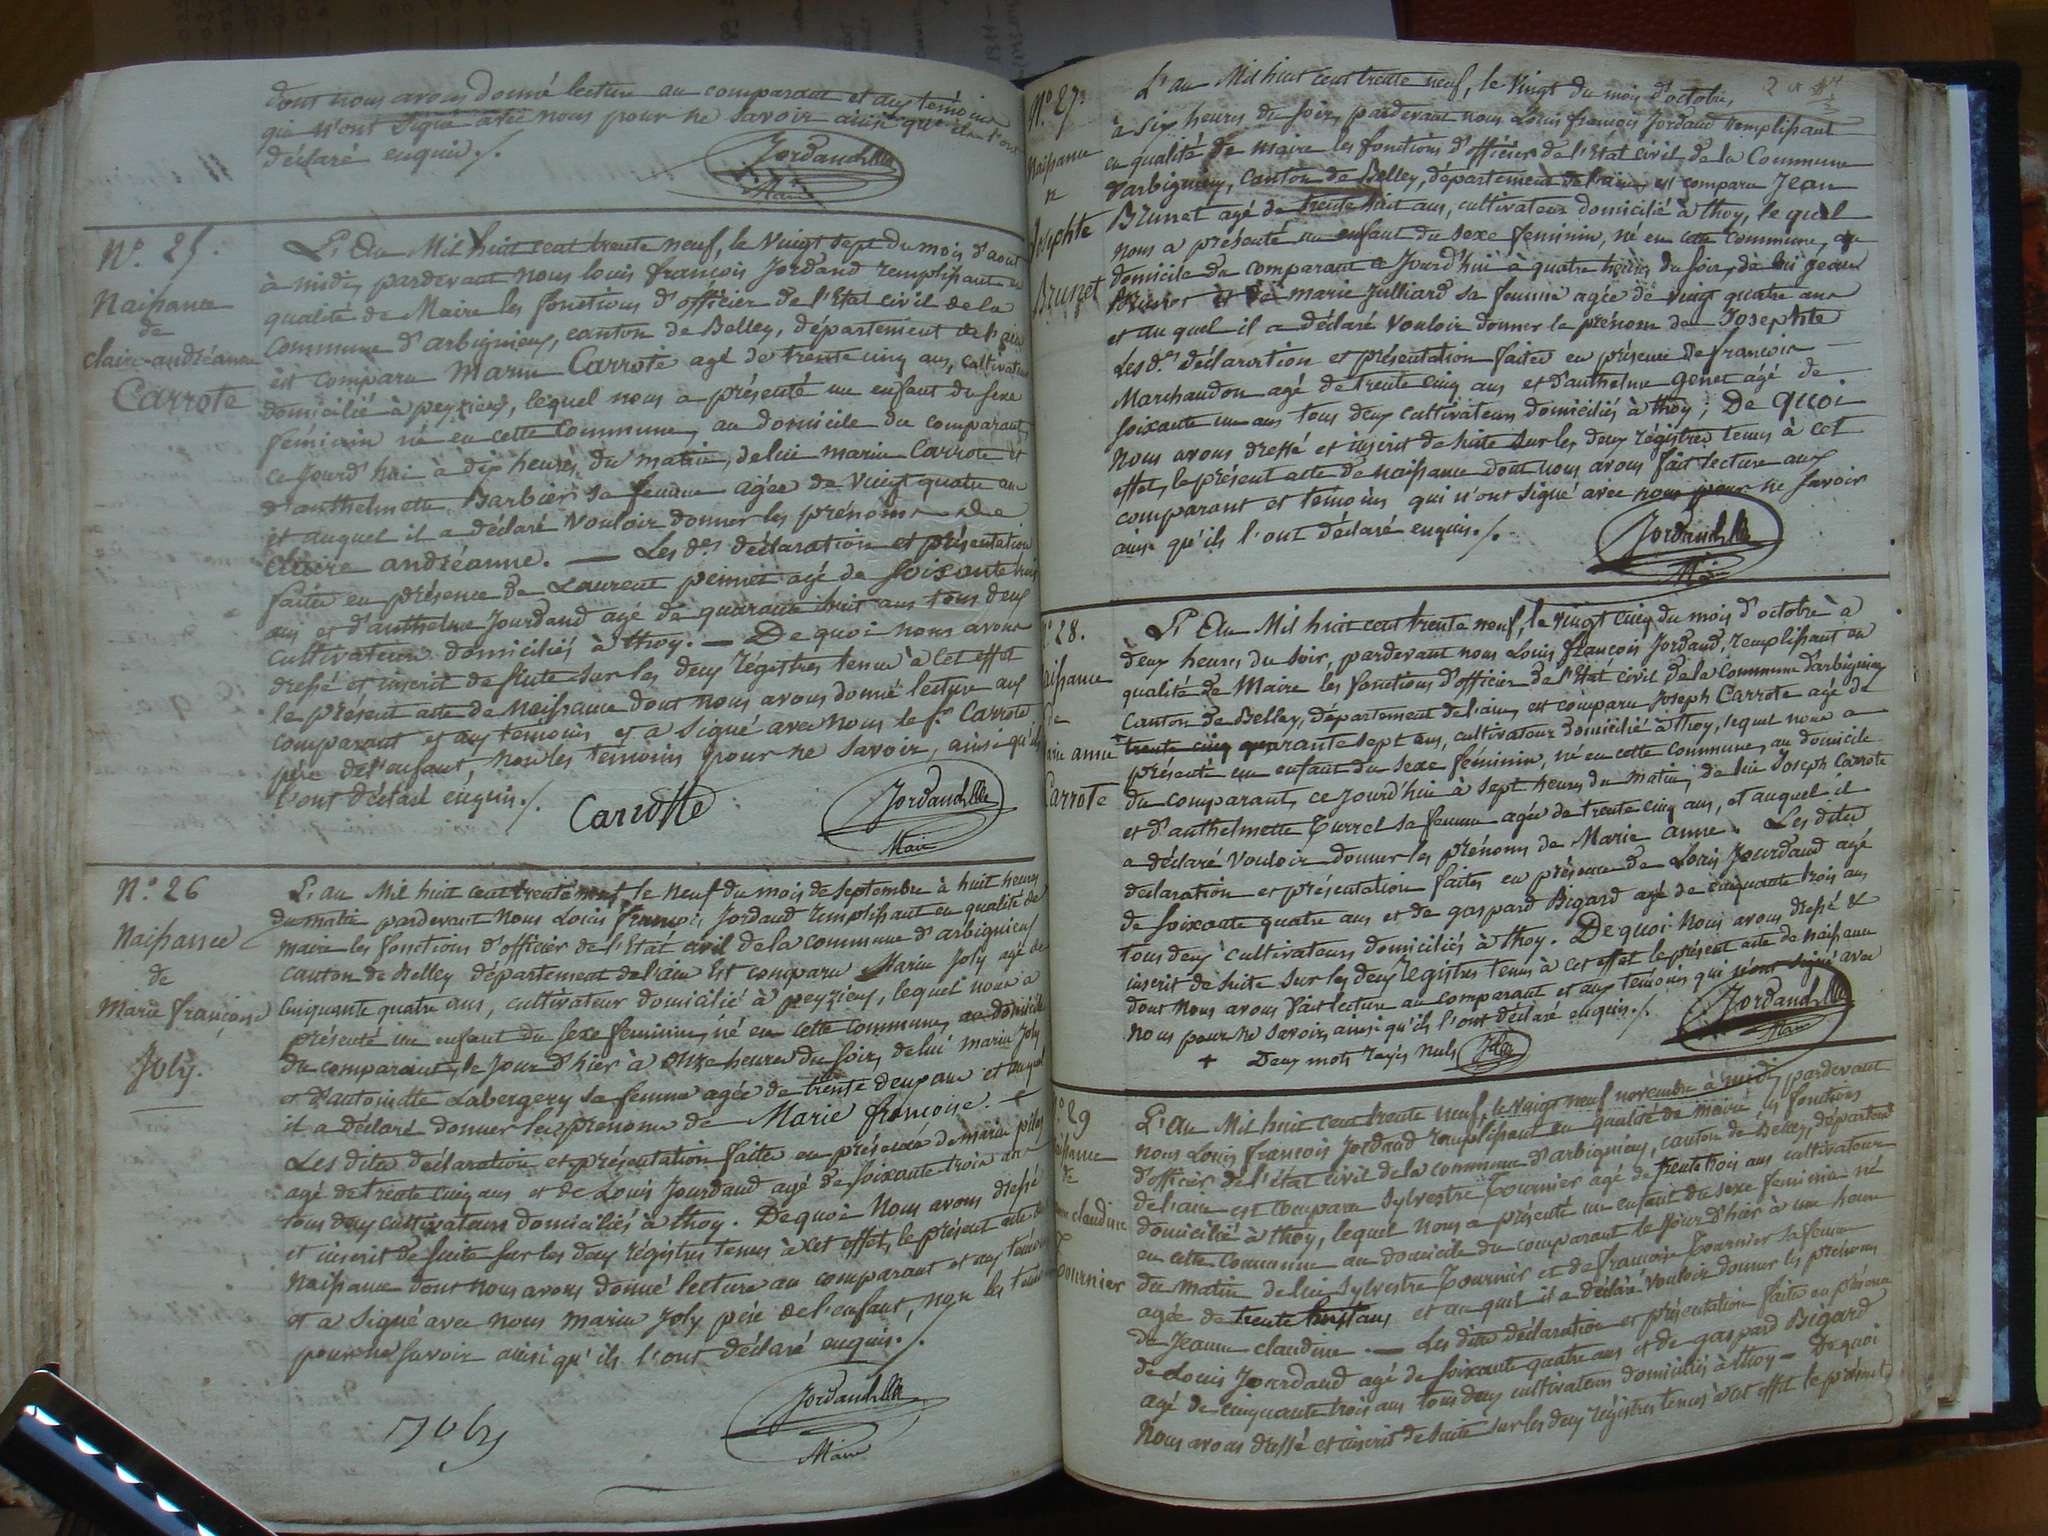 dont nous avons donné lecture au comparant et aux témoins
qui n'ont signé avec nous pour ne savoir ainsi qu'ils l'ont
déclaré enquis ./.
Jordand
Maire
N.° 25.
Naissance
de
claire-andréanne
Carrote
L'An Mil huit cent trente neuf, le vingt sept du mois d'aout
à midi, pardevant nous louis françois Jordand remplissant en
qualité de Maire les fonctions d'officier de l'Etat civil de la
Commune d'arbignieu, canton de Belley, département de l'ain
est comparu Marin Carrote agé de trente cinq ans, cultivateur
domicilié à peyzieu, lequel nous a présenté un enfant du sexe
féminin né en cette Commune, au domicile du comparant,
ce jourd'hui à dix heures du matin, de lui marin Carrote et
d'anthelmette Barbier sa femme agée de vingt quatre ans
et auquel il a déclaré vouloir donner les prénoms de
claire andréanne. — Les d.es déclaration et présentation
faites en présence de Laurent peinet agé de soixante huit
ans et d'anthelme Jourdand agé de quarante huit ans tous deux
cultivateurs domiciliés à thoy. — De quoi nous avons
dressé et inscrit de suite sur les deux régistres tenus à cet effet
le présent acte de naissance dont nous avons donné lecture aux
comparant et aux témoins et a signé avec nous le s.r Carrote
père de l'enfant, non les témoins pour ne savoir, ainsi qu'ils
l'ont déclaré enquis ./.
Carrotte
Jordand
Maire
N.° 26
Naissance
de
Marie françoise
Joly.
L'an Mil huit cent trente neuf, le neuf du mois de septembre à huit heures
du matin pardevant Nous Louis françois Jordand remplissant en qualité de
maire les fonctions d'officier de l'Etat civil de la commune d'arbignieu
canton de Belley département de l'ain Est comparu Marin Joly agé de
Cinquante quatre ans, cultivateur domicilié à peyzieu, lequel nous a
présenté un enfant du sexe feminin, né en cette commune, au domicile
du comparant, le jour d'hier à onze heures du soir, de lui marin Joly
et d'antoinette Labergery sa femme agée de trente deux ans et auquel
il a déclaré donner les prenoms de Marie françoise. —
Les dites déclaration et présentation faites en présence de marin
agé de trente cinq ans et de Louis Jourdand agé de soixante trois ans
tous deux cultivateurs domiciliés à thoy. De quoi Nous avons dressé
et inscrit de suite sur les deux régistres tenus à cet effet, le présent acte de
Naissance dont nous avons donné lecture au comparant et aux témoins
et a signé avec nous marin Joly père de l'enfant, non les témoins
pour ne savoir ainsi qu'ils l'ont déclaré enquis ./.
Joly
Jordand
Maire
N.° 27
Naissance
de
Josephte
Brunet
L'an Mil huit cent trente neuf, le vingt du mois d'octobre,
à six heures du soir, pardevant nous Louis françois Jordand remplissant
en qualité de maire les fonctions d'officier de l'Etat civil de la Commune
d'arbignieu, canton de Belley, département de l'ain, est comparu Jean
Brunet agé de trente huit ans, cultivateur domicilié à thoy, le quel
nous a présenté un enfant du sexe feminin, né en cette commune, au
domicile du comparant ce jourd'hui à quatre heures du soir, de lui Jean
Brunet et de marie Julliard sa femme agée de vingt quatre ans
et au quel il a déclaré vouloir donner le prénom de Josephte
Les d.es déclaration et présentation faites en présence de francois
Marchaudon agé de trente cinq ans et d'anthelme genet agé de
soixante un ans tous deux cultivateurs domiciliés à thoy; De quoi
Nous avons dressé et inscrit de suite sur les deux régistres tenus à cet
effet, le présent acte de naissance dont nous avons fait lecture aux
comparant et témoins qui n'ont signé avec nous pour ne savoir
ainsi qu'ils l'ont déclaré enquis ./.
Jordand
Maire
28.
Naissance
de
Marie anne
Carrote
L'An Mil huit cent trente neuf, le vingt cinq du mois d'octobre à
deux heures du soir, pardevant nous Louis françois Jordand, remplissant en
qualité de Maire les fonctions d'officier de l'Etat civil de la Commune d'arbignieu
Canton de Belley, département de l'ain, est comparu Joseph Carrote agé de
trente cinq quarante sept ans, cultivateur domicilié à thoy, lequel nous a
présenté un enfant du sexe féminin, né en cette Commune, au domicile
du comparant, ce jourd'hui à sept heures du matin, de lui Joseph Carrote
et d'anthelmette Turrel sa femme agée de trente cinq ans, et auquel il
a déclaré vouloir donner les prénoms de Marie anne. Les dites
déclaration et présentation faites en présence de Louis Jourdand agé
de soixante quatre ans et de gaspard Bigard agé de cinquante trois ans
tous deux cultivateurs domiciliés à thoy. De quoi Nous avons dressé &
inscrit de suite sur les deux régistres tenus à cet effet le présent acte de naissance
dont Nous avons fait lecture au comparant et aux témoins qui n'ont signé avec
Nous pour ne savoir, ainsi qu'ils l'ont déclaré enquis ./.
+ Deux mots rayés nuls
Jordand
Maire
29
Naissance
de
Jeanne claudine
Tournier
L'An Mil huit cent trente neuf, le vingt neuf novembre à midi, pardevant
nous Louis françois Jordand remplissant en qualité de maire, les fonctions
d'officier de l'état civil de la commune d'arbignieu, canton de Belley, département
de l'ain est comparu Sylvestre Tournier agé de trente trois ans cultivateur
domicilié à thoy, lequel nous a présenté un enfant du sexe feminin né
en cette Commune au domicile du comparant le jour d'hier à une heure
du matin de lui Sylvestre Tournier et de francoise Tournier sa femme
agée de trente huit ans et au quel il a déclaré vouloir donner les prénoms
de Jeanne claudine. — Les dites déclaration et présentation faites en présence
de Louis Jourdand agé de soixante quatre ans et de gaspard Bigard
agé de cinquante trois ans tous deux cultivateurs domiciliés à thoy — De quoi
Nous avons dressé et inscrit de suite sur les deux régistres tenus à cet effet le présent